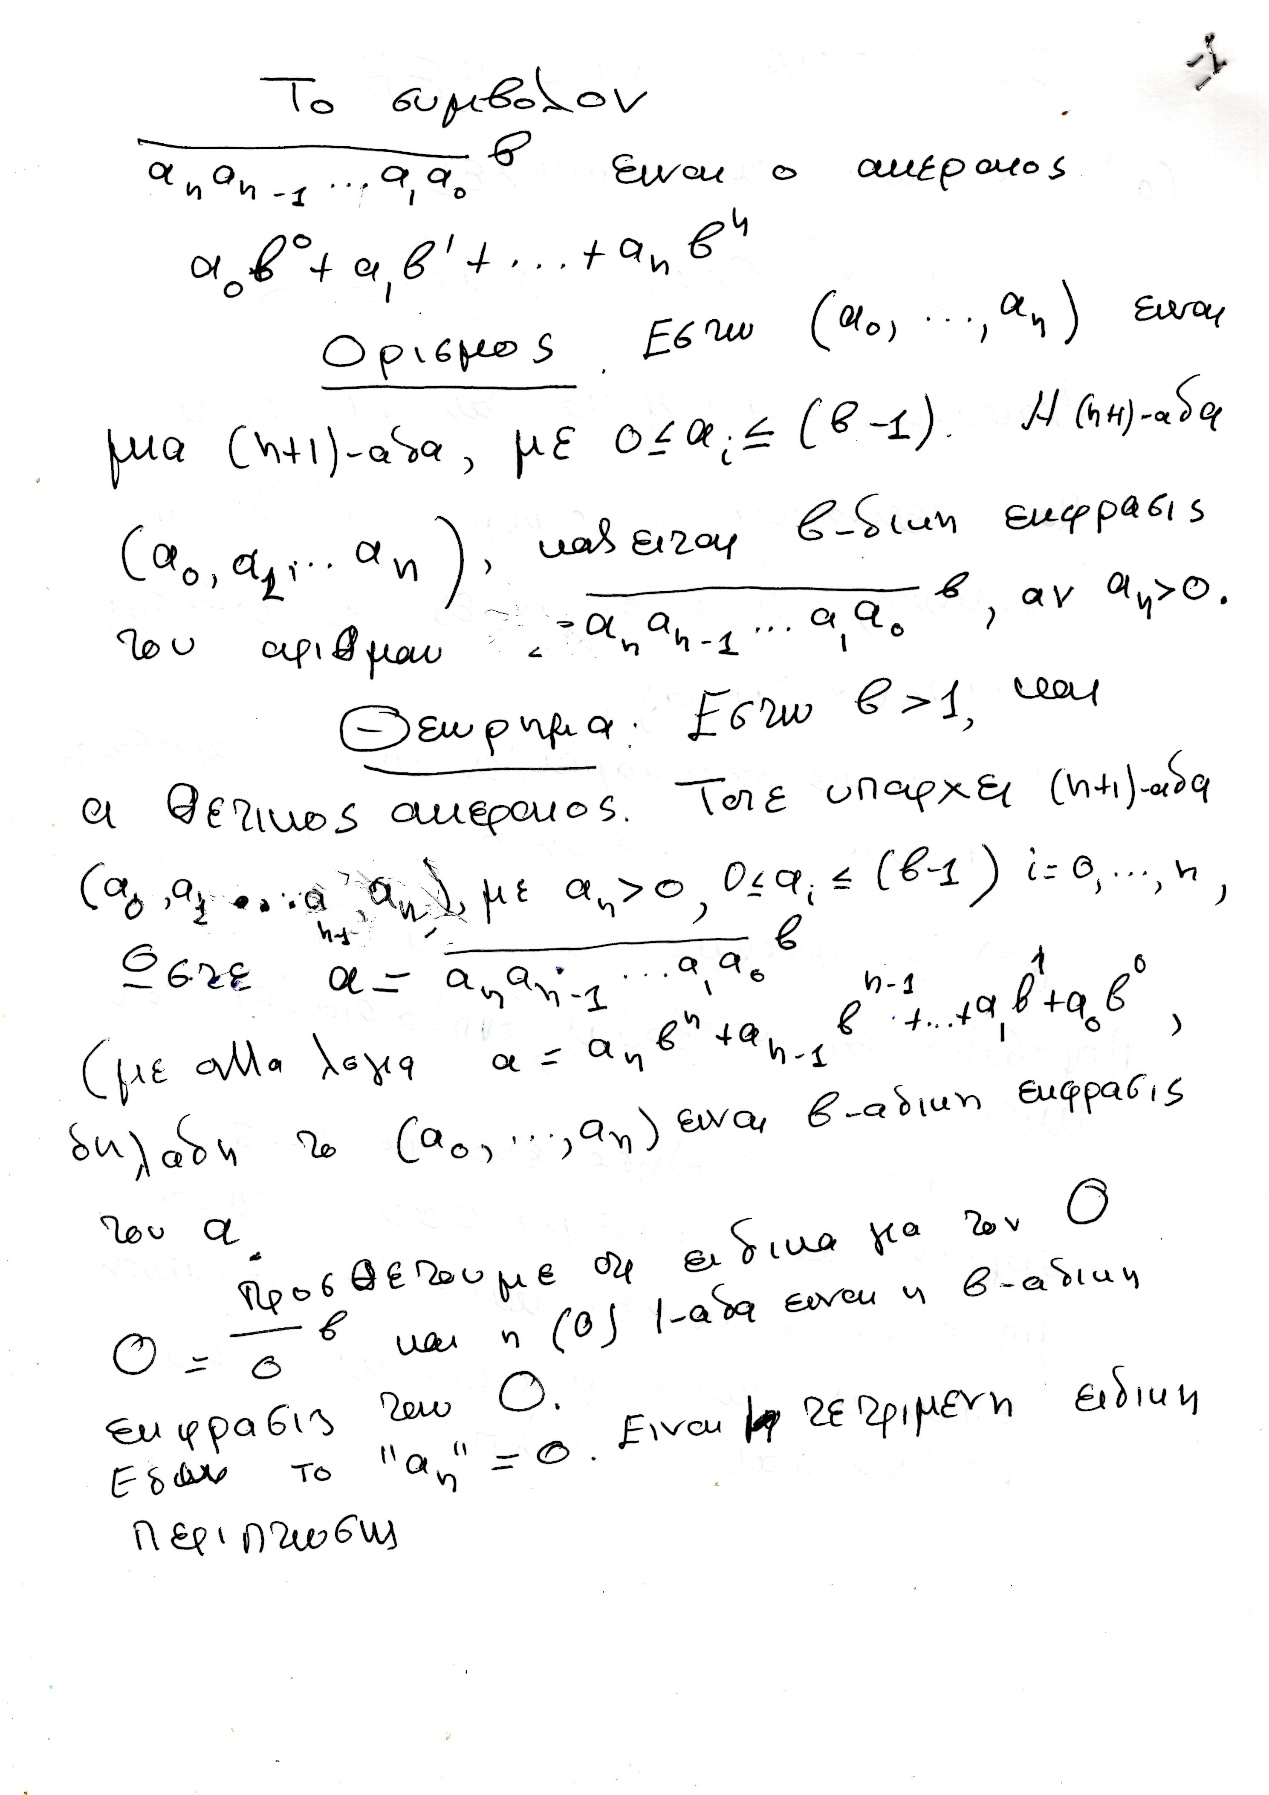 -1
Το συμβολον
a_n a_{n-1} ... a_1 a_0 ^β ειναι ο ακεραιος
a_0 β^0 + a_1 β^1 + ... + a_n β^n
Ορισμος. Εστω (a_0, ..., a_n) ειναι
μια (n+1)-αδα, με 0 ≤ a_i ≤ (β-1). Η (n+1)-αδα
(a_0, a_1, ... a_n), καλειται β-δικη εκφρασις
του αριθμου = a_n a_{n-1} ... a_1 a_0 ^β, αν a_n > 0.
Θεωρημα. Εστω β > 1, και
a θετικος ακεραιος. Τοτε υπαρχει (n+1)-αδα
(a_0, a_1 ... a_{n-1}, a_n), με a_n > 0, 0 ≤ a_i ≤ (β-1) i = 0, ..., n,
ωστε a = a_n a_{n-1} ... a_1 a_0 ^β
(με αλλα λογια a = a_n β^n + a_{n-1} β^{n-1} + ... + a_1 β^1 + a_0 β^0,
δηλαδη το (a_0, ..., a_n) ειναι β-αδικη εκφρασις
του a.
Προσθετουμε οτι ειδικα για τον 0
0 = 0 ^β και η (0) 1-αδα ειναι η β-αδικη
εκφρασις του 0.
Εδω το "a_n" = 0. Ειναι τετριμενη ειδικη
περιπτωσις